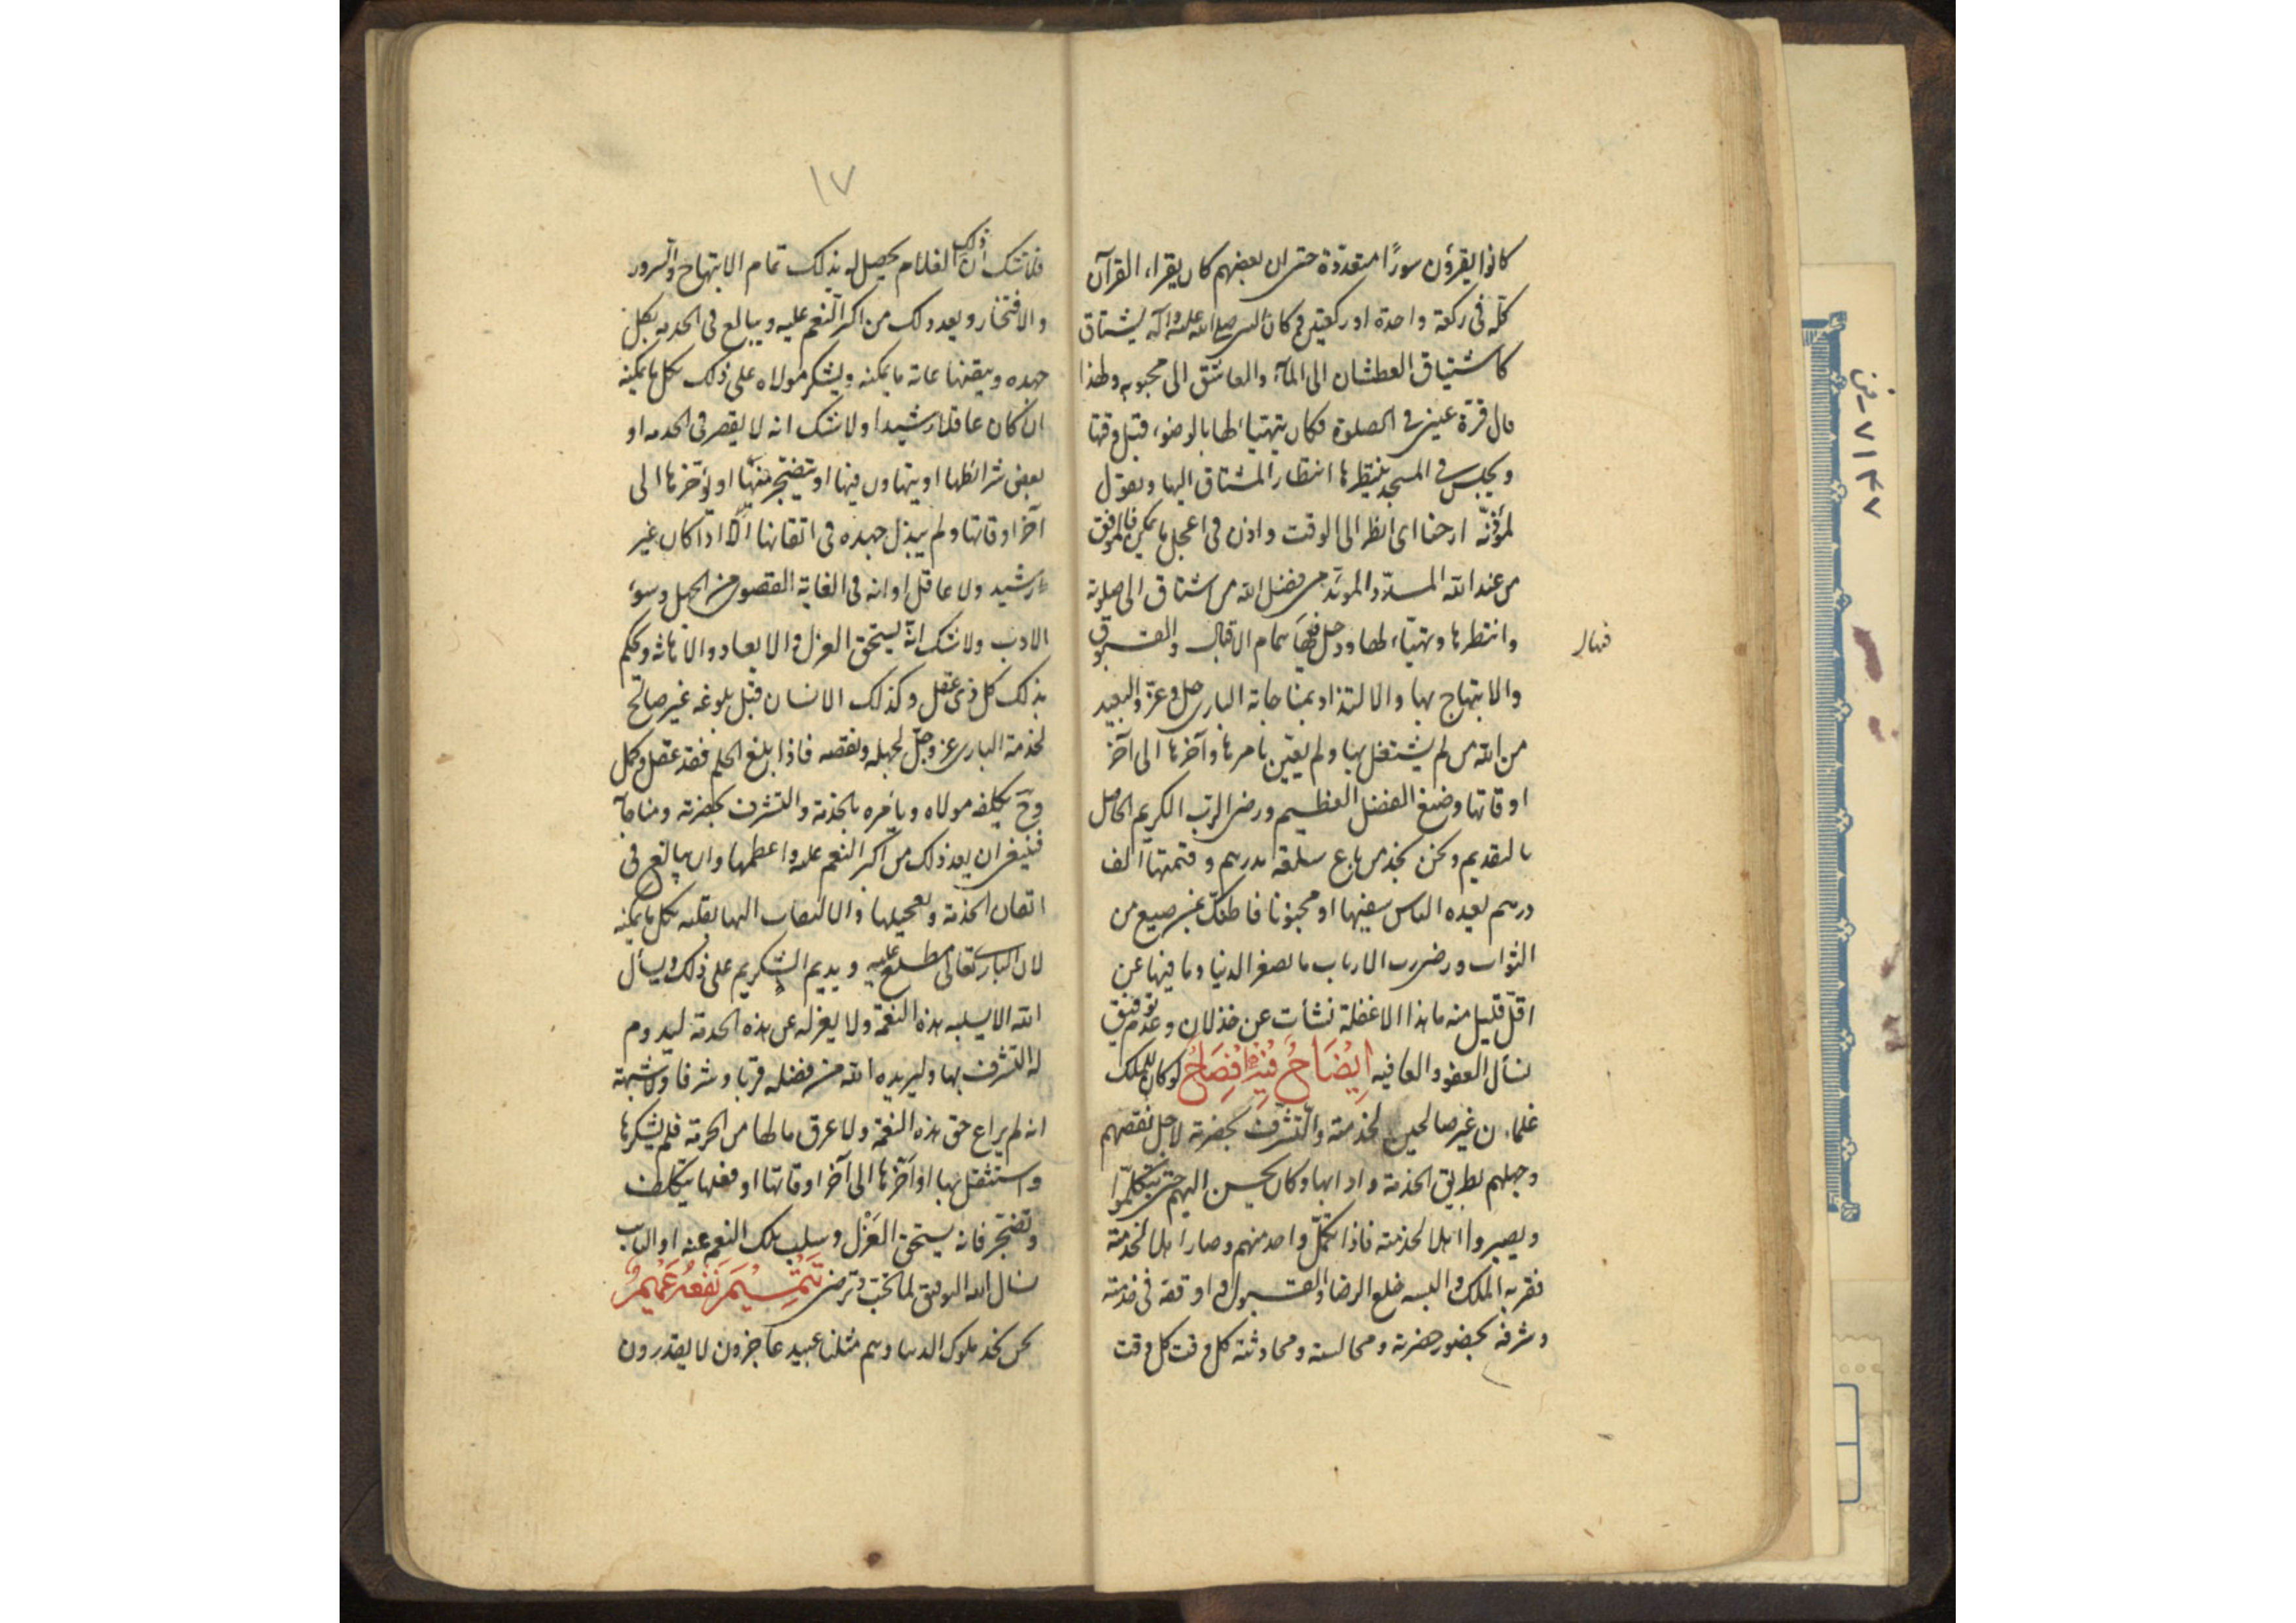 كانوا يقرؤن سورًا متعددة حتى ان بعضهم كان يقراء القرآن
كلّه فى ركعة واحدة او ركعتين و كان النبى صلى الله عليه وآله يشتاق
كاشتياق العطشان الى المآء والعاشق الى محبوبه ولهذا
قال قرة عينى فى الصلوة فكان يتهيأ لها بالوضوء قبل وقتها
ويجلس فى المسجد ينتظرها انتظار المشتاق اليها ويقول
لمؤذنه ارحنا اى انظر الى الوقت واذن فى اعجل ما يمكن فالموفق
من عند الله المسدد المؤيد من فضل الله من اشتاق الى صلوته
وانتظرها وتهيّاء لها ودخل فيها بتمام الاقبال والقبول
فيها
والابتهاج بها والالتذاذ بمناجاة البارى جل وعز والبعيد
من الله من لم يشتغل بها ولم يعتن بامرها وآخرها الى آخر
اوقاتها وضيع الفضل العظيم ورضى الرب الكريم الحاصل
بالتقديم ونحن نجد من باع سلعة بدرهم وقيمتها الف
درهم يعده الناس سفيها او مجنونا فما ظنك بمن ضيع من
الثواب ورضى رب الارباب ما يصغر الدنيا وما فيها عن
اقلّ قليل منه ما هذا الا غفلة نشأت عن خذلان وعدم توفيق
نسأل العفو والعافيه اِيْضَاحٌ فيهِ اِفْصَاحٌ لو كان للملك
غلمان غير صالحين لخدمته والتشرف بحضرته لاجل نقصهم
وجهلهم بطريق الخدمة وادابها وكان يحسن اليهم حتى يتكلموا
ويصيروا اهلا لخدمته فاذا تكمّل واحد منهم وصار اهلا لخدمته
فقربه الملك والبسه خلع الرضا والقبول و اوقفه فى خدمته
وشرفه بحضور حضرته ومجالسته ومحادثته كل وقت كل وقت
١٧
فلا شك ان ذلك الغلام يحصل له بذلك تمام الابتهاج والسرور
والافتخار ويعد ذلك من اكبر النعم عليه ويبالغ فى الخدمة بكل
جهده ويتقنها غاية ما يمكنه ويشكر مولاه على ذلك بكل ما يمكنه
ان كان عاقلا رشيدا ولا شك انه لا يقصر فى الخدمه او
بعض شرائطها او يتهاون فيها او يتضجر منها او يؤخرها الى
آخر اوقاتها ولم يبذل جهده فى اتقانها الّا اذا كان غير
رشيد ولا عاقل او انه فى الغاية القصوى من الجهل وسوء
الادب ولا شك انّه يستحق العزل والابعاد والاهانة ويحكم
بذلك كل ذى عقل وكذلك الانسان قبل بلوغه غير صالح
لخدمة البارى عز وجلّ لجهله ونقصه فاذا بلغ الحلم فقد عقل وكمل
وح يكلفه مولاه ويأمره بالخدمة والتشرف بحضرته ومناجاته
فينبغى ان يعد ذلك من اكبر النعم عليه واعظمها وان يبالغ فى
اتقان الخدمة وتعجيلها والالتفات اليها بقلبه بكل ما يمكنه
لان البارى تعالى مطلع عليه و يديم الشكر على ذلك ويسأل
الله الا يسلبه هذه النعمة ولا يعزله عن هذه الخدمة ليدوم
له التشرف بها وليزيده الله من فضله قربا وشرفا ولا شبهة
انه لم يراع حق هذه النعمة ولا عرف ما لها من الحرمة فلم يشكرها
واستثقل بها او آخّرها الى آخر اوقاتها او فعلها بتكلف
وتضجر فانه يستحق العَزْل وسلب تلك النعم عنه
نسال الله التوفيق لما تحب وترضى تَتْمِيْمٌ نَفْعُهُ عَمِيْمٌ
نحن نجد ملوك الدنيا وهم مثلنا عبيد عاجزون لا يقدرون